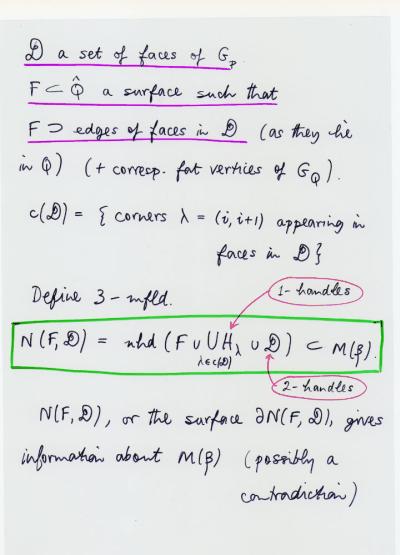 𝒟 a set of faces of G_P
F ⊂ Q̂ a surface such that
F ⊃ edges of faces in 𝒟 (as they lie
in Q) (+ corresp. fat vertices of G_Q).
c(𝒟) = { corners λ = (i, i+1) appearing in
faces in 𝒟 }
1-handles
Define 3-mfld.
N(F, 𝒟) = nhd (F ∪ ⋃ H_λ ∪ 𝒟) ⊂ M(β).
λ∈c(𝒟)
2-handles
N(F, 𝒟), or the surface ∂N(F, 𝒟), gives
information about M(β) (possibly a
contradiction)